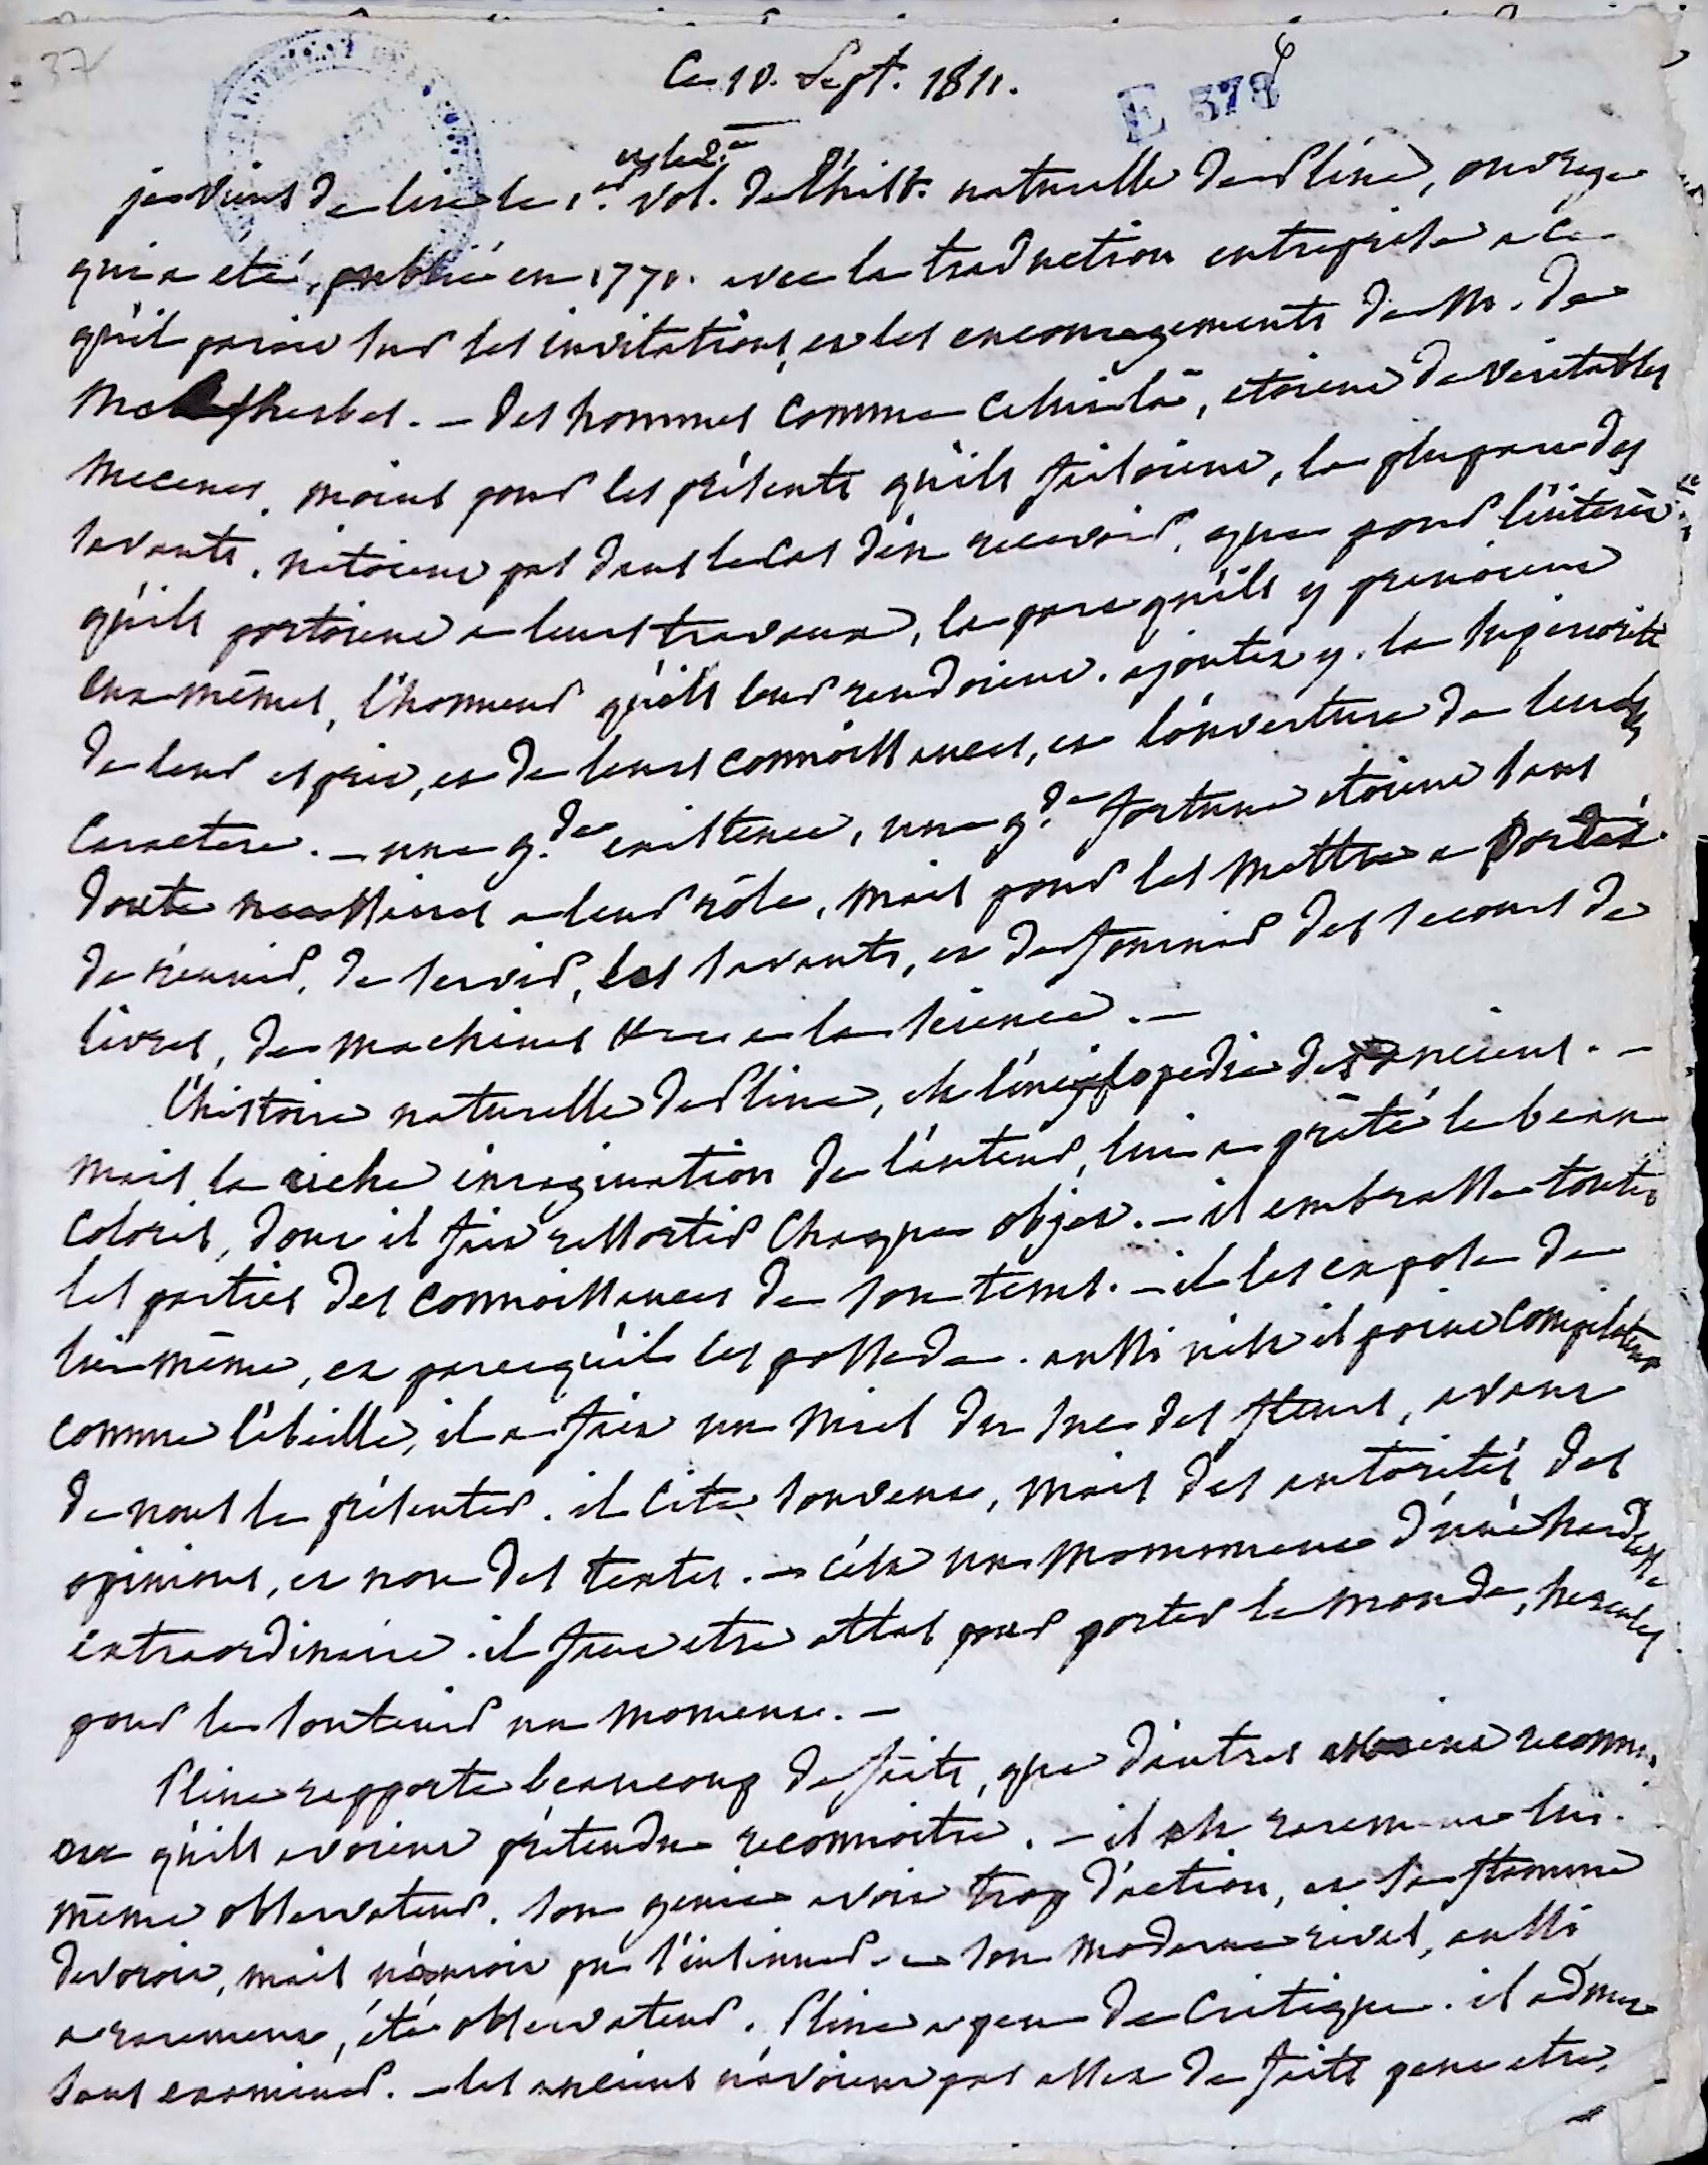 37
Ce 10. Sept. 1811.
E 378
6
je viens de lire le 1.er et le 2.e vol. de l'hist. naturelle de Pline, ouvrage
qui a eté, publié en 1771. avec la traduction entreprise a ce
qu'il paroit sur les invitations, et les encouragements de M. de
Malesherbes. – des hommes comme celui-là, etoient de veritables
mecenes, moins pour les présents qu'ils faisoient, la plupart des
savants, n'etoient pas dans le cas d'en recevoir, que pour l'intérêt
qu'ils portoient a leurs travaux, la part qu'ils y prenoient
eux-mêmes, l'honneur qu'ils leur rendoient. ajoutez y. la superiorité
de leur esprit, et de leurs connoissances, et l'ouverture de leur
caractere. – une g.de existence, une g.de fortune etoient sans
doute necessaires a leur rôle, mais pour les mettre a portée
de réunir, de servir, les savants, et de fournir des secours de
livres, de machines &c a la science. –
L'histoire naturelle de Pline, est l'enciclopedie des anciens. –
mais la riche imagination de l'auteur, lui a prêté le beau
coloris, dont il fait ressortir chaque objet. – il embrasse toutes
les parties des connoissances de son tems. – il les expose de
lui même, et parcequ'il les possede. aussi n'est il point compilateur
comme l'abeille, il a fait un miel du suc des fleurs, avant
de nous le présenter. il cite souvent, mais des autorités des
opinions, et non des textes. – c'est un monument d'une hardiesse
extraordinaire. il faut etre atlas pour porter le monde, hercules
pour le soutenir un moment. –
Pline rapporte beaucoup de faits, que d'autres avoient reconnus
ou qu'ils avoient prétendu reconnoitre. – il est rarement lui-
même observateur. son genie avoit trop d'action, et sa flamme
devoroit, mais n'auroit pu s'insinuer. – son moderne rival, aussi
a rarement, été observateur. Pline a peu de critique. il admet
sans examiner. – les anciens n'avoient pas assez de faits peut etre,